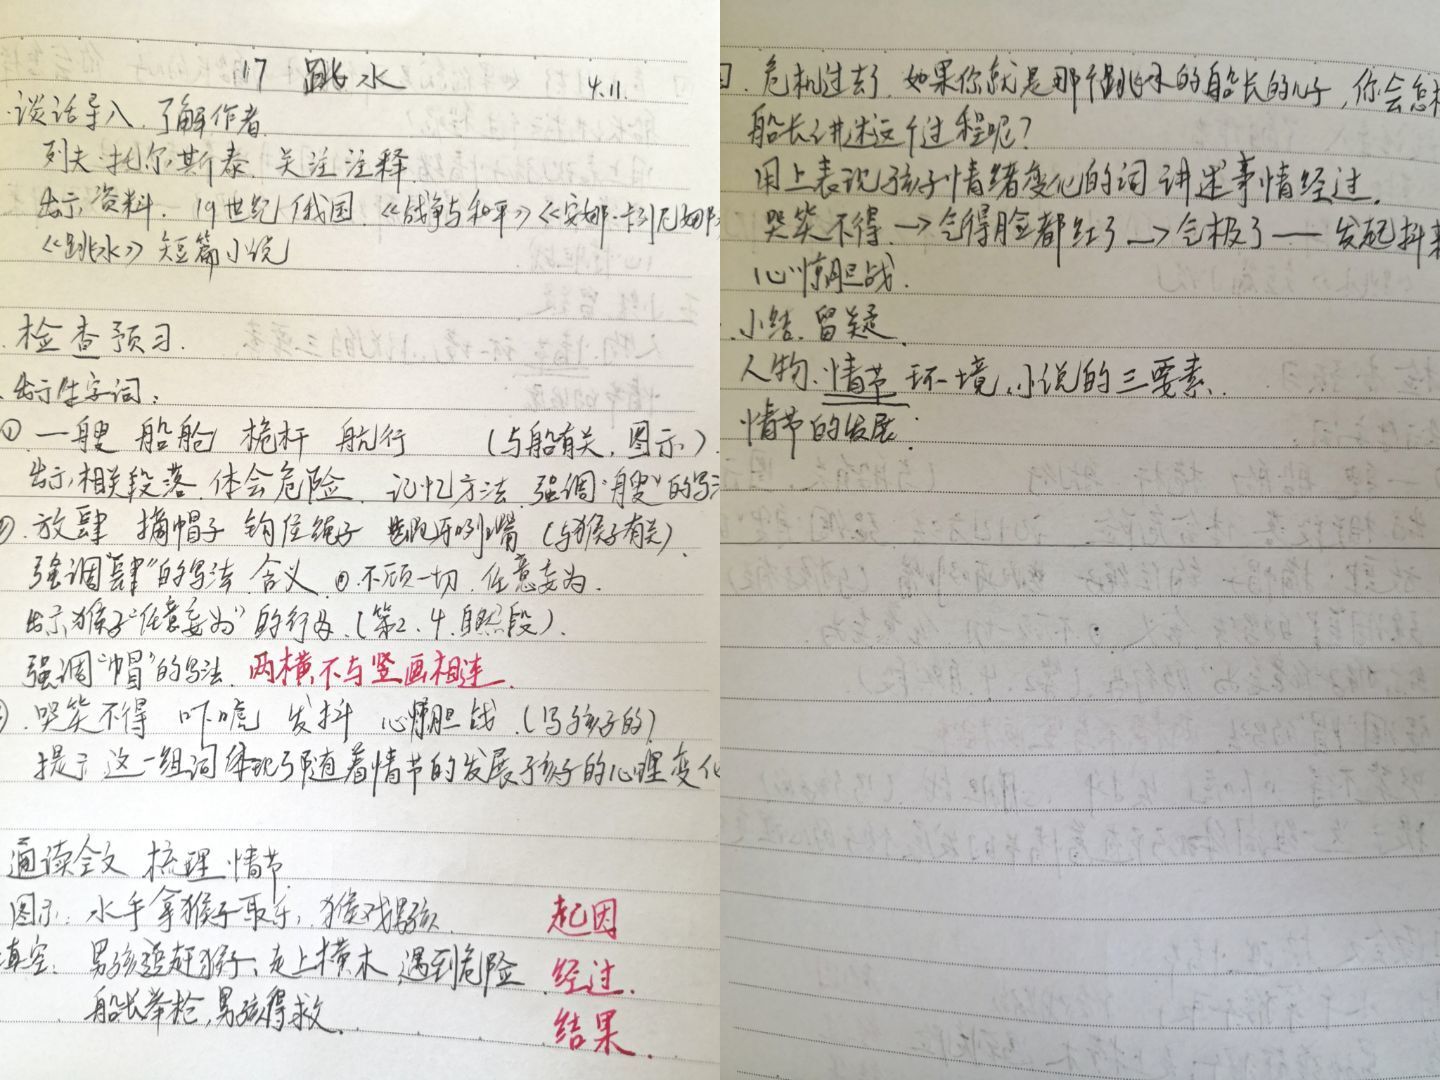 17 跳水 4.11.
谈话导入,了解作者.
列夫·托尔斯泰. 关注注释.
出示资料. 19世纪俄国.《战争与和平》《安娜·卡列尼娜
《跳水》短篇小说
检查预习.
出示生字词:
① 一艘 船舱 桅杆 航行 (与船有关,图示)
出示相关段落.体会危险. 记忆方法. 强调"艘"的写法
放肆 摘帽子 钩住绳子 龇牙咧嘴 (与猴子有关).
强调"肆"的写法.含义. 不顾一切.任意妄为.
出示猴子"任意妄为"的行为.(第2、4.自然段).
强调"帽"的写法. 两横不与竖画相连.
哭笑不得 吓唬 发抖 心惊胆战.(写孩子的)
提示这一组词体现了随着情节的发展孩子的心理变化
通读全文 梳理情节.
图示: 水手拿猴子取乐,猴戏男孩. 起因
填空: 男孩追赶猴子,走上横木.遇到危险 经过.
船长举枪,男孩得救. 结果.
四.危机过去了.如果你就是那个跳水的船长的儿子,你会怎样
船长讲述这个过程呢?
用上表现孩子情绪变化的词讲述事情经过.
哭笑不得.→气得脸都红了→气极了——发起抖来
心惊胆战.
小结.留疑.
人物.情节 环境.小说的三要素.
情节的发展: